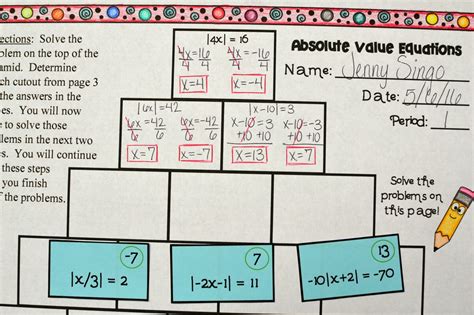 ections: Solve the
blem on the top of the
amid. Determine
ch cutout from page 3
the answers in the
es. You will now
e to solve those
lems in the next two
es. You will continue
these steps
you finish
f the problems.
|4x| = 16
4x=16 4x=-16
4 4 4 4
x=4 x=-4
|6x|=42
6x=42 6x=-42
6 6 6 6
x=7 x=-7
|x-10|=3
x-10=3 x-10=-3
+10 +10 +10 +10
x=13 x=7
Absolute Value Equations
Name: Jenny Singo
Date: 5/6/16
Period: 1
Solve the
problems on
this page!
-7
|x/3| = 2
7
|-2x-1| = 11
13
-10|x+2| = -70